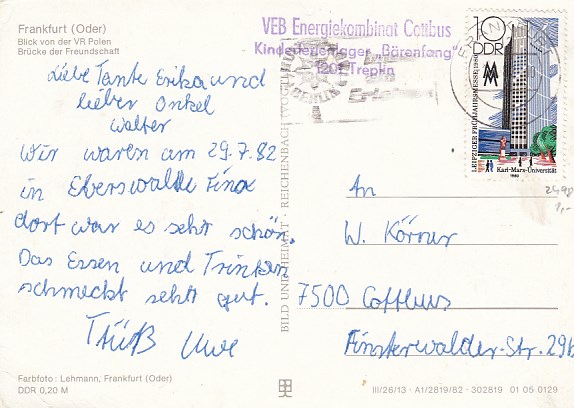 Frankfurt (Oder)
Blick von der VR Polen
Brücke der Freundschaft
VEB Energiekombinat Cottbus
Kinderferienlager „Bärenfang"
1201 Treplin
10
DDR
LEIPZIGER FRÜHJAHRSMESSE 1980
Karl-Marx-Universität
1980
BERLIN
Liebe Tante Erika und
lieber Onkel
Walter
Wir waren am 29.7.82
in Eberswalde Finow
dort war es sehr schön.
Das Essen und Trinken
schmeckt sehr gut.
Tschüß Uwe
BILD UND HEIMAT · REICHENBACH (VOGTL)
An
W. Körner
7500 Cottbus
Finsterwalder-Str. 29b
2498
1,-
Farbfoto: Lehmann, Frankfurt (Oder)
DDR 0,20 M
III/26/13 · A1/2819/82 · 302819 01 05 0129